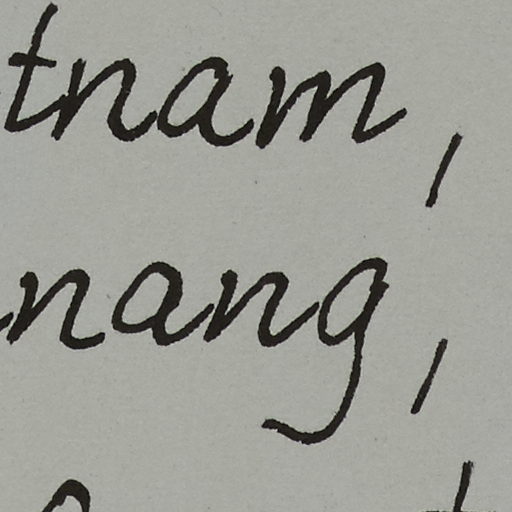 tnam,
nang,